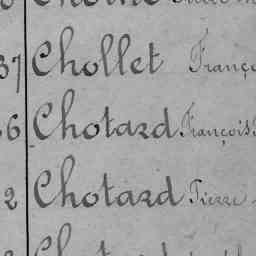 37 Chollet Franço
6 Chotard François
2 Chotard Pierre